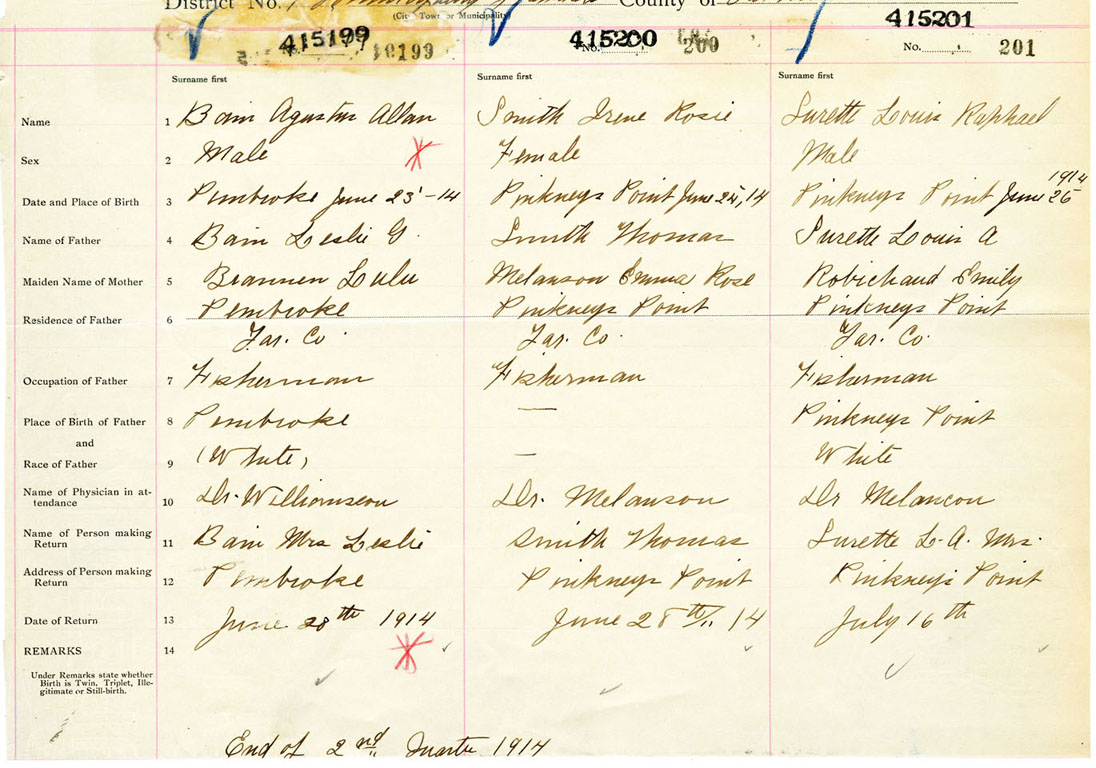 District No. County of
(City Town or Municipality)
415199 415200 415201
No. 10199 No. 200 No. 201
Surname first Surname first Surname first
Name 1 Bain Agustus Allan Smith Irene Rosie Surette Louis Raphael
Sex 2 Male Female Male
1914
Date and Place of Birth 3 Pembroke June 23 -14 Pinkneys Point June 24, 14 Pinkneys Point June 26
Name of Father 4 Bain Leslie G. Smith Thomas Surette Louis A
Maiden Name of Mother 5 Brannen Lulu Melanson Emma Rose Robichaud Emily
Residence of Father 6 Pembroke Pinkneys Point Pinkneys Point
Yar. Co Yar. Co. Yar. Co.
Occupation of Father 7 Fisherman Fisherman Fisherman
Place of Birth of Father 8 Pembroke — Pinkneys Point
and
Race of Father 9 (White) — White
Name of Physician in at-
tendance 10 Dr. Williamson Dr. Melanson Dr Melancon
Name of Person making
Return 11 Bain Mrs Leslie Smith Thomas Surette L. A. Mrs.
Address of Person making
Return 12 Pembroke Pinkneys Point Pinkneys Point
Date of Return 13 June 28th 1914 June 28th 14 July 16th
REMARKS 14
Under Remarks state whether
Birth is Twin, Triplet, Ille-
gitimate or Still-birth.
End of 2nd Quarter 1914